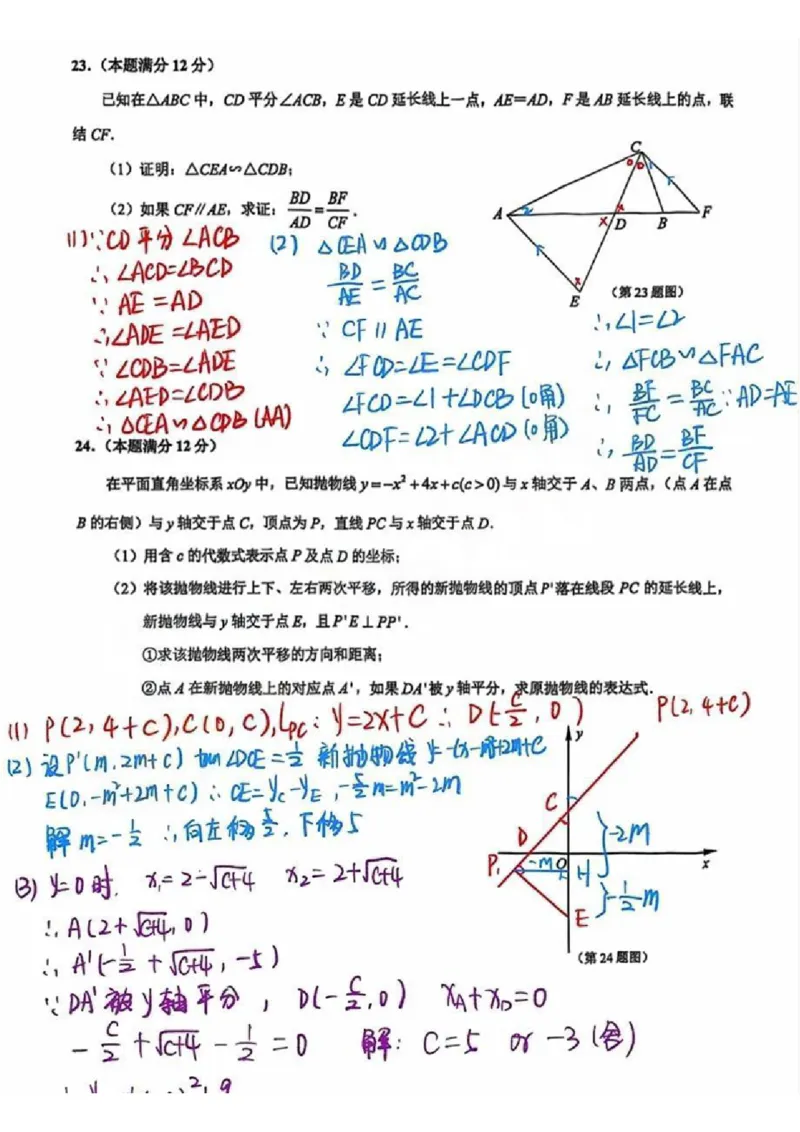 23.（本题满分12分）
已知在△ABC中，CD平分∠ACB，E是CD延长线上一点，AE=AD，F是AB延长线上的点，联
结CF.
（1）证明：△CEA∽△CDB；
（2）如果CF∥AE，求证：BD/AD=BF/CF.
C
A
D
B
F
E
（第23题图）
(1)∵CD平分∠ACB
∴∠ACD=∠BCD
∵AE=AD
∴∠ADE=∠AED
∵∠CDB=∠ADE
∴∠AED=∠CDB
∴△CEA∽△CDB(AA)
(2) △CEA∽△CDB
BD/AE=BC/AC
∵CF∥AE
∴∠FCD=∠E=∠CDF
∠FCD=∠1+∠DCB(o角)
∠CDF=∠2+∠ACD(o角)
∴∠1=∠2
∴△FCB∽△FAC
∴BF/FC=BC/AC ∵AD=AE
∴BD/AD=BF/CF
24.（本题满分12分）
在平面直角坐标系xOy中，已知抛物线y=-x²+4x+c(c>0)与x轴交于A、B两点，（点A在点
B的右侧）与y轴交于点C，顶点为P，直线PC与x轴交于点D.
（1）用含c的代数式表示点P及点D的坐标；
（2）将该抛物线进行上下、左右两次平移，所得的新抛物线的顶点P'落在线段PC的延长线上，
新抛物线与y轴交于点E，且P'E⊥PP'.
①求该抛物线两次平移的方向和距离；
②点A在新抛物线上的对应点A'，如果DA'被y轴平分，求原抛物线的表达式.
(1) P(2,4+C),C(0,C),lPC:y=2x+C ∴D(-C/2,0)
P(2,4+C)
(2)设P'(m,2m+c) tan∠DCE=1/2 新抛物线y=-(x-m)²+2m+C
E(0,-m²+2m+c) ∴CE=yC-yE,-5/2m=m²-2m
解m=-1/2 ∴向左移5/2,下移5
y
C
D
O
x
P'
-m
H
E
-2m
-1/2m
（第24题图）
(3) y=0时, x₁=2-√(c+4) x₂=2+√(c+4)
∴A(2+√(c+4),0)
∴A'(-1/2+√(c+4),-5)
∵DA'被y轴平分, D(-C/2,0) xA+xD=0
-C/2+√(c+4)-1/2=0 解:C=5 or -3(舍)